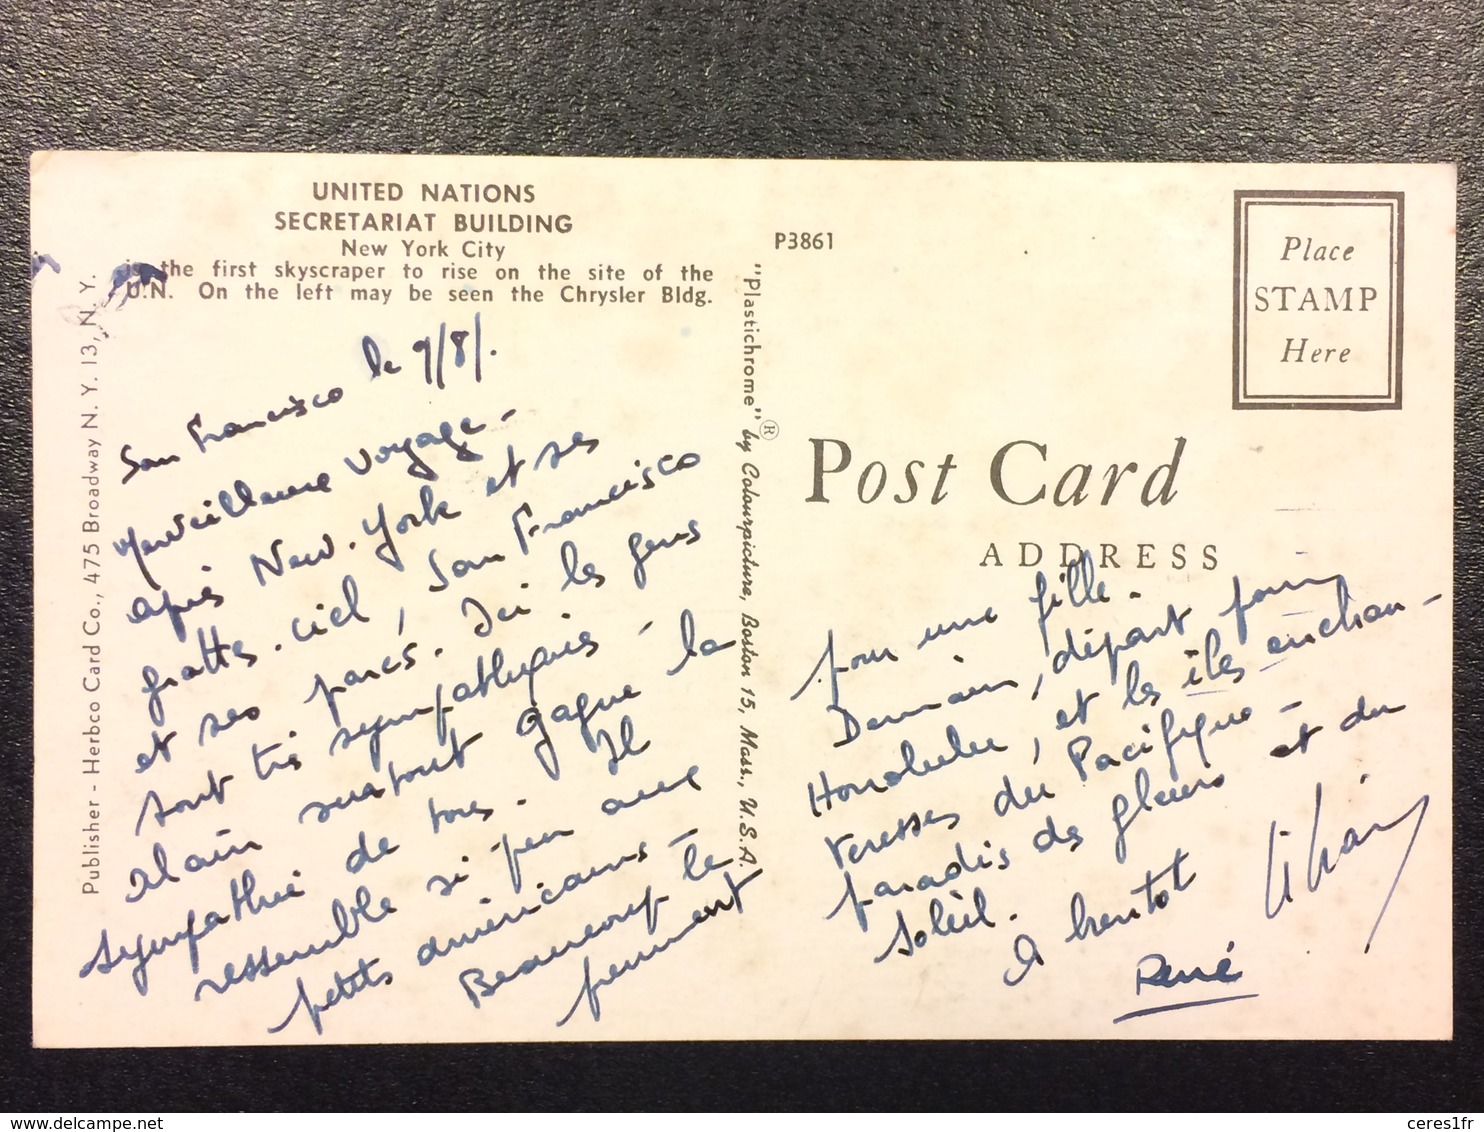 UNITED NATIONS
SECRETARIAT BUILDING
New York City
is the first skyscraper to rise on the site of the
U.N. On the left may be seen the Chrysler Bldg.
Publisher - Herbco Card Co., 475 Broadway N. Y. 13, N. Y.
San Francisco le 9/8/.
Merveilleux voyage -
après New-York et ses
gratte-ciel, San Francisco
et ses parcs. Ici les gens
sont très sympathiques - la
Alain surtout gagne la
sympathie de tous. Il
ressemble si peu aux
petits américains -
Beaucoup le
prennent
"Plastichrome" ® by Colourpicture, Boston 15, Mass., U.S.A.
P3861
Place
STAMP
Here
Post Card
ADDRESS
pour une fille.
Demain, départ pour
Honolulu, et les îles enchan-
teresses du Pacifique -
paradis des fleurs et du
soleil.
A bientôt
René
ceres1fr